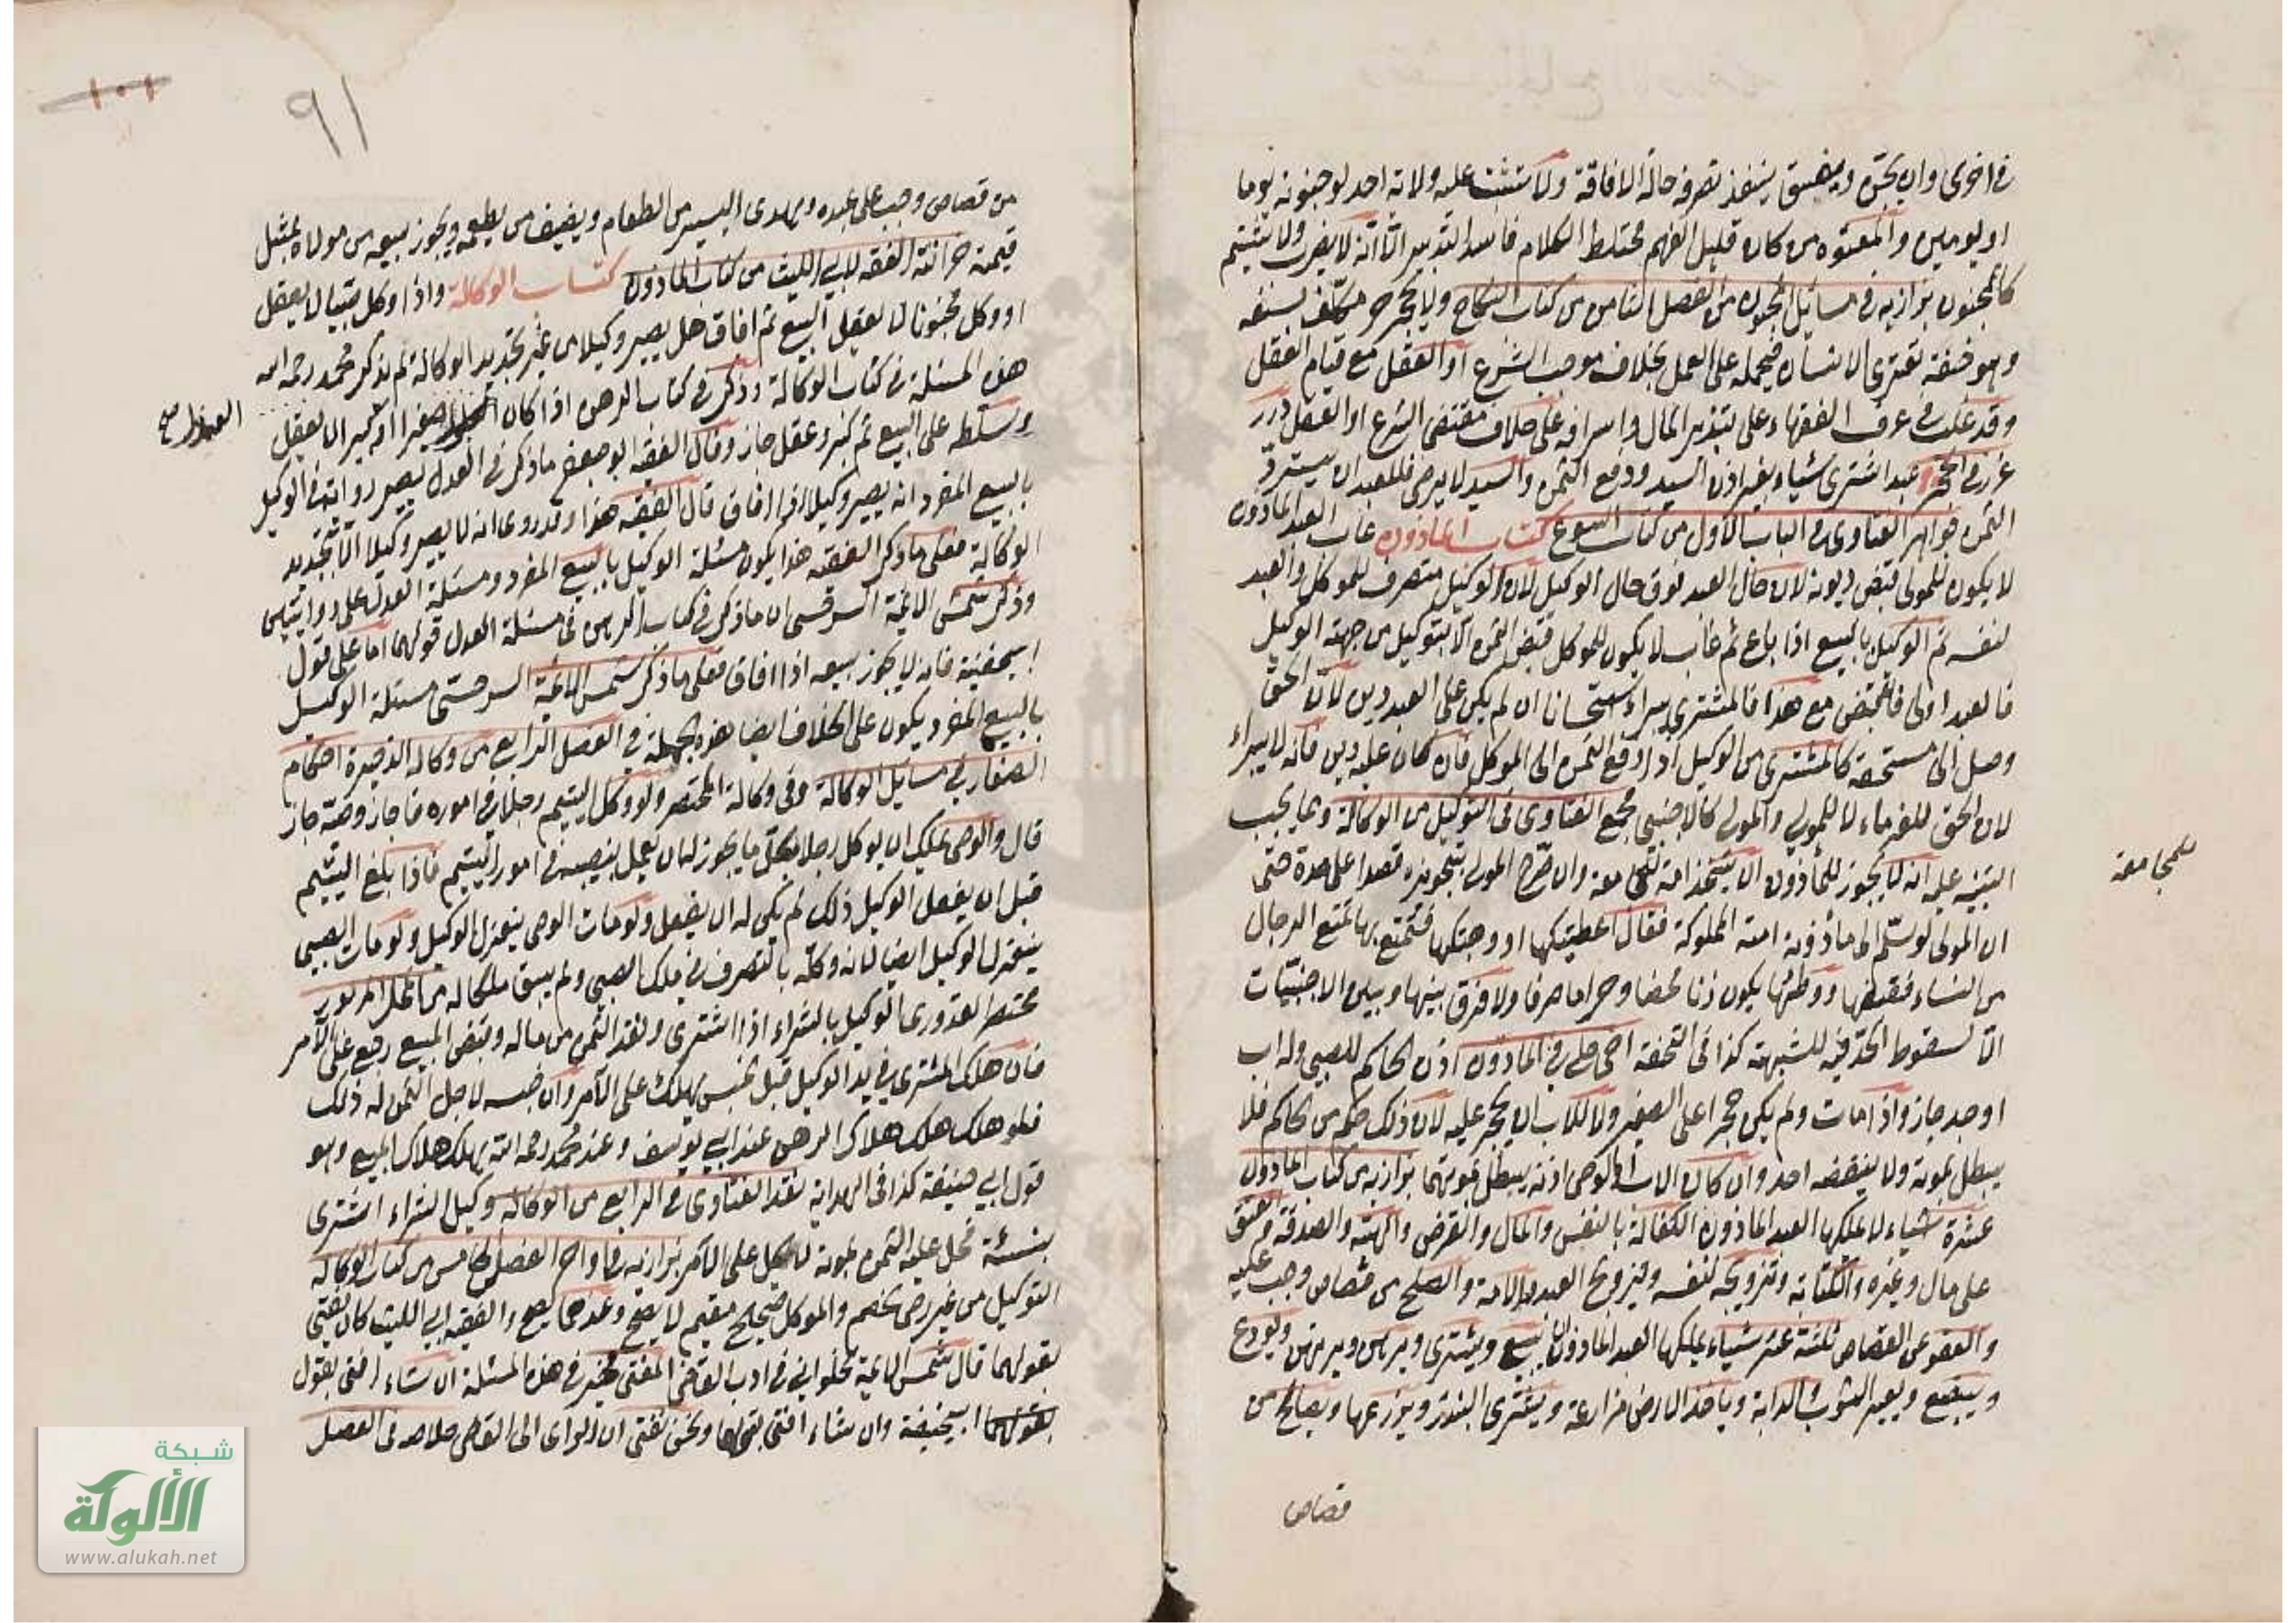 في اخرى وان يجن ويفيق ينفذ تصرفه حالة الافاقة ولا تثبت عليه ولاية احد لو جنونه يوما
او يومين والمعتوه من كان قليل الفهم مختلط الكلام فاسد التدبير الا انه لا يضرب ولا يشتم
كالمجنون بزازيه في مسائل المجنون من الفصل الثامن من كتاب النكاح ولا يحجر حر مكلف بسفه
وهو خفة تعترى الانسان فيحمله على العمل بخلاف موجب الشرع او العقل مع قيام العقل
وقد غلب في عرف الفقهاء على تبذير المال واسرافه على خلاف مقتضى الشرع او العقل درر
غرر في الحجر عبد اشترى شياء بغير اذن السيد ودفع الثمن والسيد لا يرضى فللعبد ان يسترد
الثمن جواهر الفتاوى في الباب الاول من كتاب البيوع كتاب الماذون غاب العبد الماذون
لا يكون للمولى قبض ديونه لان حال العبد فوق حال الوكيل لان الوكيل متصرف للموكل والعبد
لنفسه ثم الوكيل بالبيع اذا باع ثم غاب لا يكون للموكل قبض الثمن الا بتوكيل من جهة الوكيل
فالعبد اولى فان قبض مع هذا فالمشترى يبراء استحسانا ان لم يكن على العبد دين لان الحق
وصل الى مستحقه كالمشترى من الوكيل اذا دفع الثمن الى الموكل فان كان عليه دين فانه لا يبراء
لان الحق للغرماء لا للمولى والمولى كالاجنبي مجمع الفتاوى في التوكيل من الوكالة ومما يجب
التنبيه عليه انه لا يجوز للماذون ان يتخذ امة للمجامعة وان صرح المولى بتجويزه قصدا على حدة حتى
ان المولى لو سلم الى ماذونه امته المملوكة فقال اعطيتكها او وهبتكها فتمتع بها تمتع الرجال
من النساء فقبضها ووطئها يكون زنا محضا وحراما صرفا ولا فرق بينها وبين الاجنبيات
الا لسقوط الحد فيه للشبهة كذا في التحفة اخى چلبي في الماذون اذن الحاكم للصبي وله اب
او جد جاز واذا مات ولم يكن حجرا على الصغير ولا للاب ان يحجر عليه لان ذلك حكم من الحاكم فلا
يبطل بموته ولا ينقضه احد وان كان الاب او الوصى اذنه يبطل بموتهما بزازيه من كتاب الماذون
عشرة اشياء لا يملكها العبد الماذون الكفالة بالنفس والمال والقرض والهبة والصدقة والعتق
على مال وغيره والكتابة وتزويجه لنفسه وتزويج العبد والامة والصلح من قصاص وجب عليه
والعفو عن القصاص ثلثة عشر شياء يملكها العبد الماذون ان يبيع ويشترى ويرهن ويرتهن ويودع
ويبضع ويعير الثوب والدابة وياخذ الارض مزارعة ويشترى البذر ويزرعها ويصالح من
للمجامعة
قصاص
١٠١
٩١
من قصاص وجب على عبده ويهدى اليسير من الطعام ويضيف من يطعمه ويجوز بيعه من مولاه بمثل
قيمته خزانة الفقه لابي الليث من كتاب الماذون كتاب الوكالة واذا وكل صبيا لا يعقل
او وكل مجنونا لا يعقل البيع ثم افاق هل يصير وكيلا من غير تجديد الوكالة لم يذكر محمد رحمه الله
هذه المسئلة في كتاب الوكالة وذكر في كتاب الرهن اذا كان صغيرا او كبيرا لا يعقل
وسلطه على البيع ثم كبر وعقل جاز وقال الفقيه ابو جعفر ما ذكر في العدل يصير رواية في الوكيل
بالبيع المفرد انه يصير وكيلا اذا افاق قال الفقيه هذا وقد روى انه لا يصير وكيلا الا بتجديد
الوكالة فعلى ما ذكر الفقيه هذا يكون مسئلة الوكيل بالبيع المفرد ومسئلة العدل على روايتين
وذكر شمس الائمة السرخسى ان ما ذكر في كتاب الرهن في مسئلة العدل قولهما اما على قول
ابيحنيفة فانه لا يجوز بيعه اذا افاق فعلى ما ذكر شمس الائمة السرخسى مسئلة الوكيل
بالبيع المفرد يكون على الخلاف ايضا هذه الجملة في الفصل الرابع من وكالة الذخيرة احكام
الصغار في مسائل الوكالة وفي وكالة المختصر ولو وكل اليتيم رجلا في اموره فاجاز وصيه جاز
قال والوصى يملك ان يوكل رجلا بكل ما يجوز له ان يعمل بنفسه في امور اليتيم فاذا بلغ اليتيم
قبل ان يفعل الوكيل ذلك لم يكن له ان يفعل ولو مات الوصى ينعزل الوكيل ولو مات الصبي
ينعزل الوكيل ايضا لانه وكله بالتصرف في ملك الصبي ولم يبق ملكا له من المحل المزبور
مختصر القدورى الوكيل بالشراء اذا اشترى ونقد الثمن من ماله وقبض المبيع رجع على الآمر
فان هلك المشترى في يد الوكيل قبل حبس يهلك على الآمر وان حبسه لاجل الثمن له ذلك
فلو هلك هلك هلاك الرهن عند ابي يوسف وعند محمد رحمه الله يهلك هلاك المبيع وهو
قول ابي حنيفة كذا في الهداية نقد الفتاوى في الرابع من الوكالة وكيل الشراء اشترى
بنسئة فحل عليه الثمن بموته لا يحل على الآمر بزازيه في اواخر الفصل الخامس من كتاب الوكالة
التوكيل من غير رضى الخصم والموكل صحيح مقيم لا يصح وعندهما يصح والفقيه ابي الليث كان يفتى
بقولهما قال شمس الائمة الحلواني في ادب القاضي المفتى مخير في هذه المسئلة ان شاء افتى بقول
ابيحنيفة وان شاء افتى بقولهما ونحن نفتى ان الراى الى القاضى خلاصه في الفصل
شبكة
الألوكة
www.alukah.net